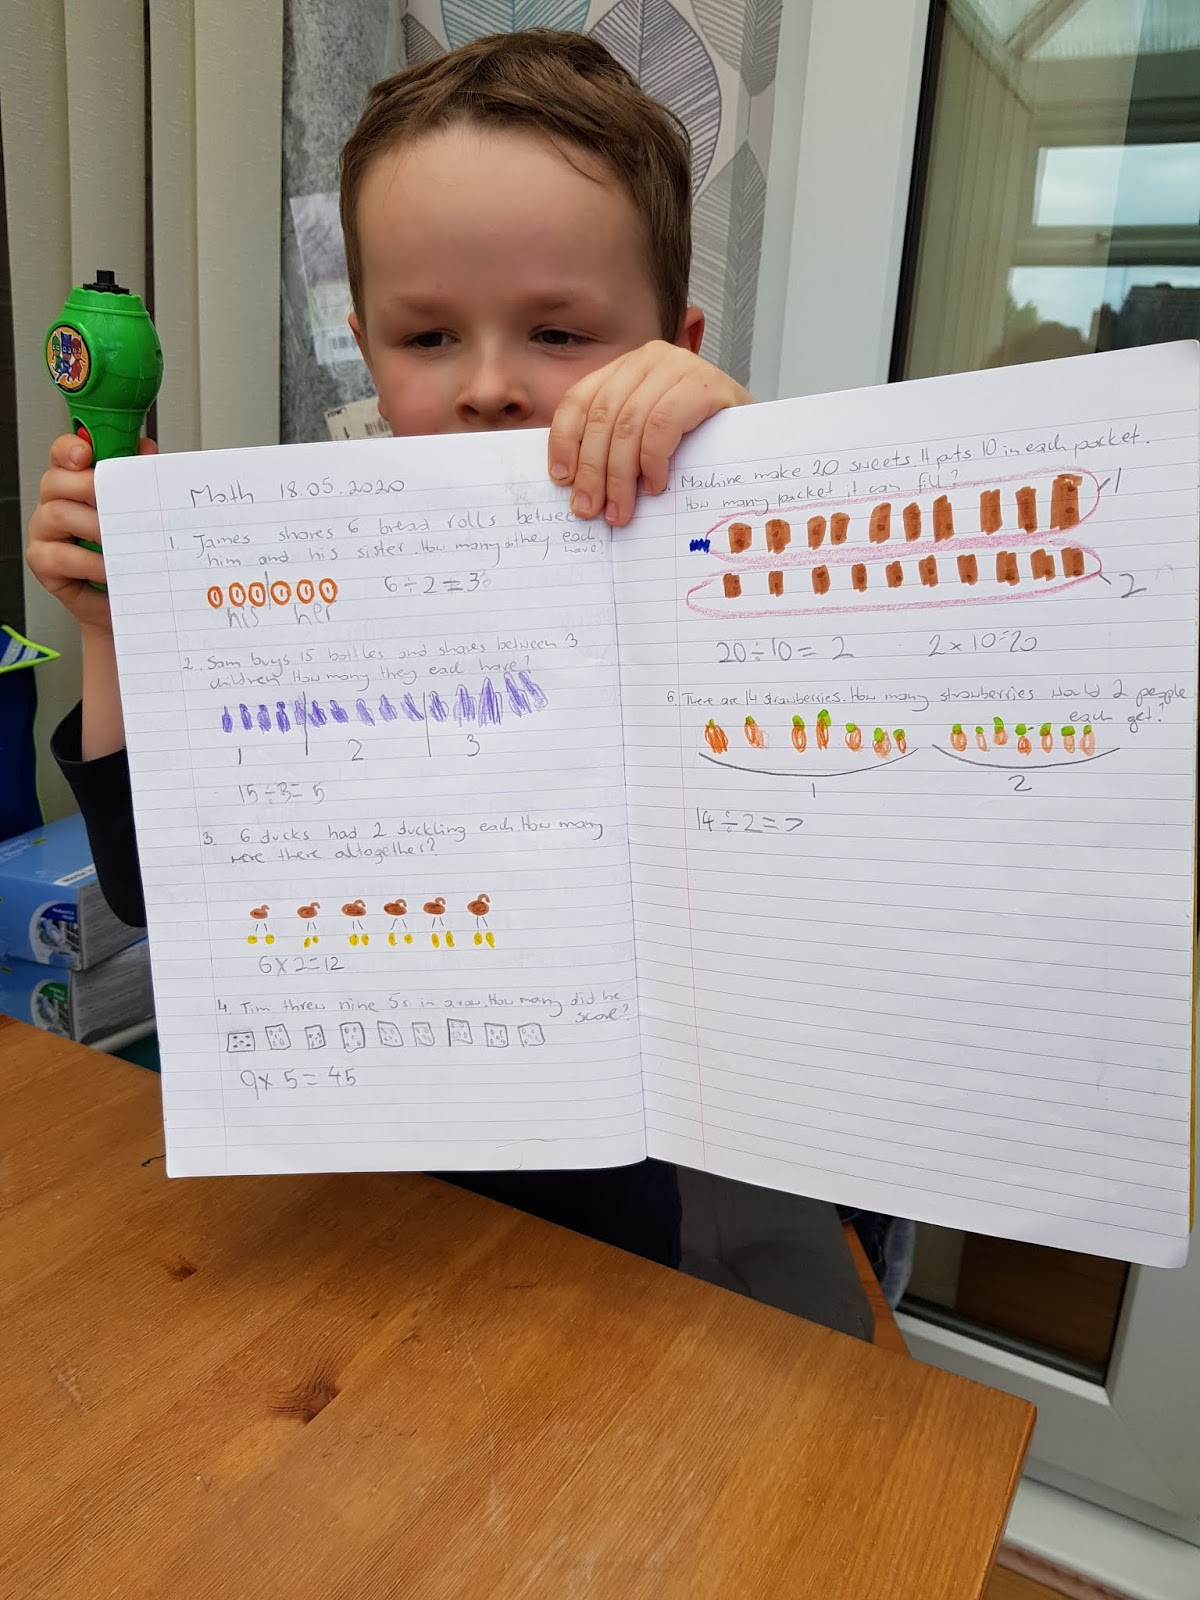 Math 18.05.2020
1. James shares 6 bread rolls between
him and his sister. How many they each
have?
6 ÷ 2 = 3
his her
2. Sam buys 15 bottles and shares between 3
children. How many they each have?
1 2 3
15 ÷ 3 = 5
3. 6 ducks had 2 duckling each. How many
were there altogether?
6 x 2 = 12
4. Tim threw nine 5s in a row. How many did he
score?
9 x 5 = 45
Machine make 20 sweets. It puts 10 in each packet.
How many packet it can fill?
1
2
20 ÷ 10 = 2 2 x 10 = 20
6. There are 14 strawberries. How many strawberries would 2 people
each get?
1 2
14 ÷ 2 = 7